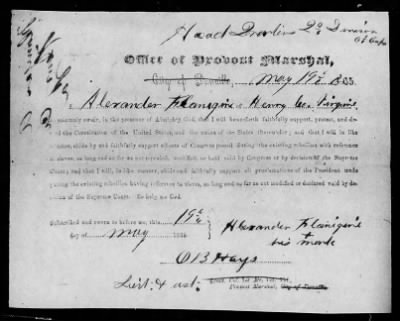 Head Quarters 2d Division
Office of Provost Marshal,
May 19th 1865.
I, Alexander Flanigin of Henry Co. Virginia
solemnly swear, in the presence of Almighty God, that I will henceforth faithfully support, protect, and de-
fend the Constitution of the United States, and the union of the States thereunder; and that I will, in like
manner, abide by and faithfully support all acts of Congress passed during the existing rebellion with reference
to slaves, so long and so far as not repealed, modified, or held void by Congress or by decision of the Supreme
Court; and that I will, in like manner, abide and faithfully support all proclamations of the President made
during the existing rebellion having reference to slaves, so long and so far as not modified or declared void by decision
of the Supreme Court. So help me God.
Subscribed and sworn to before me, this 19th
day of May 1865
Alexander Flanigin
his mark
O B Hays
Lieut & asst.
Provost Marshal,